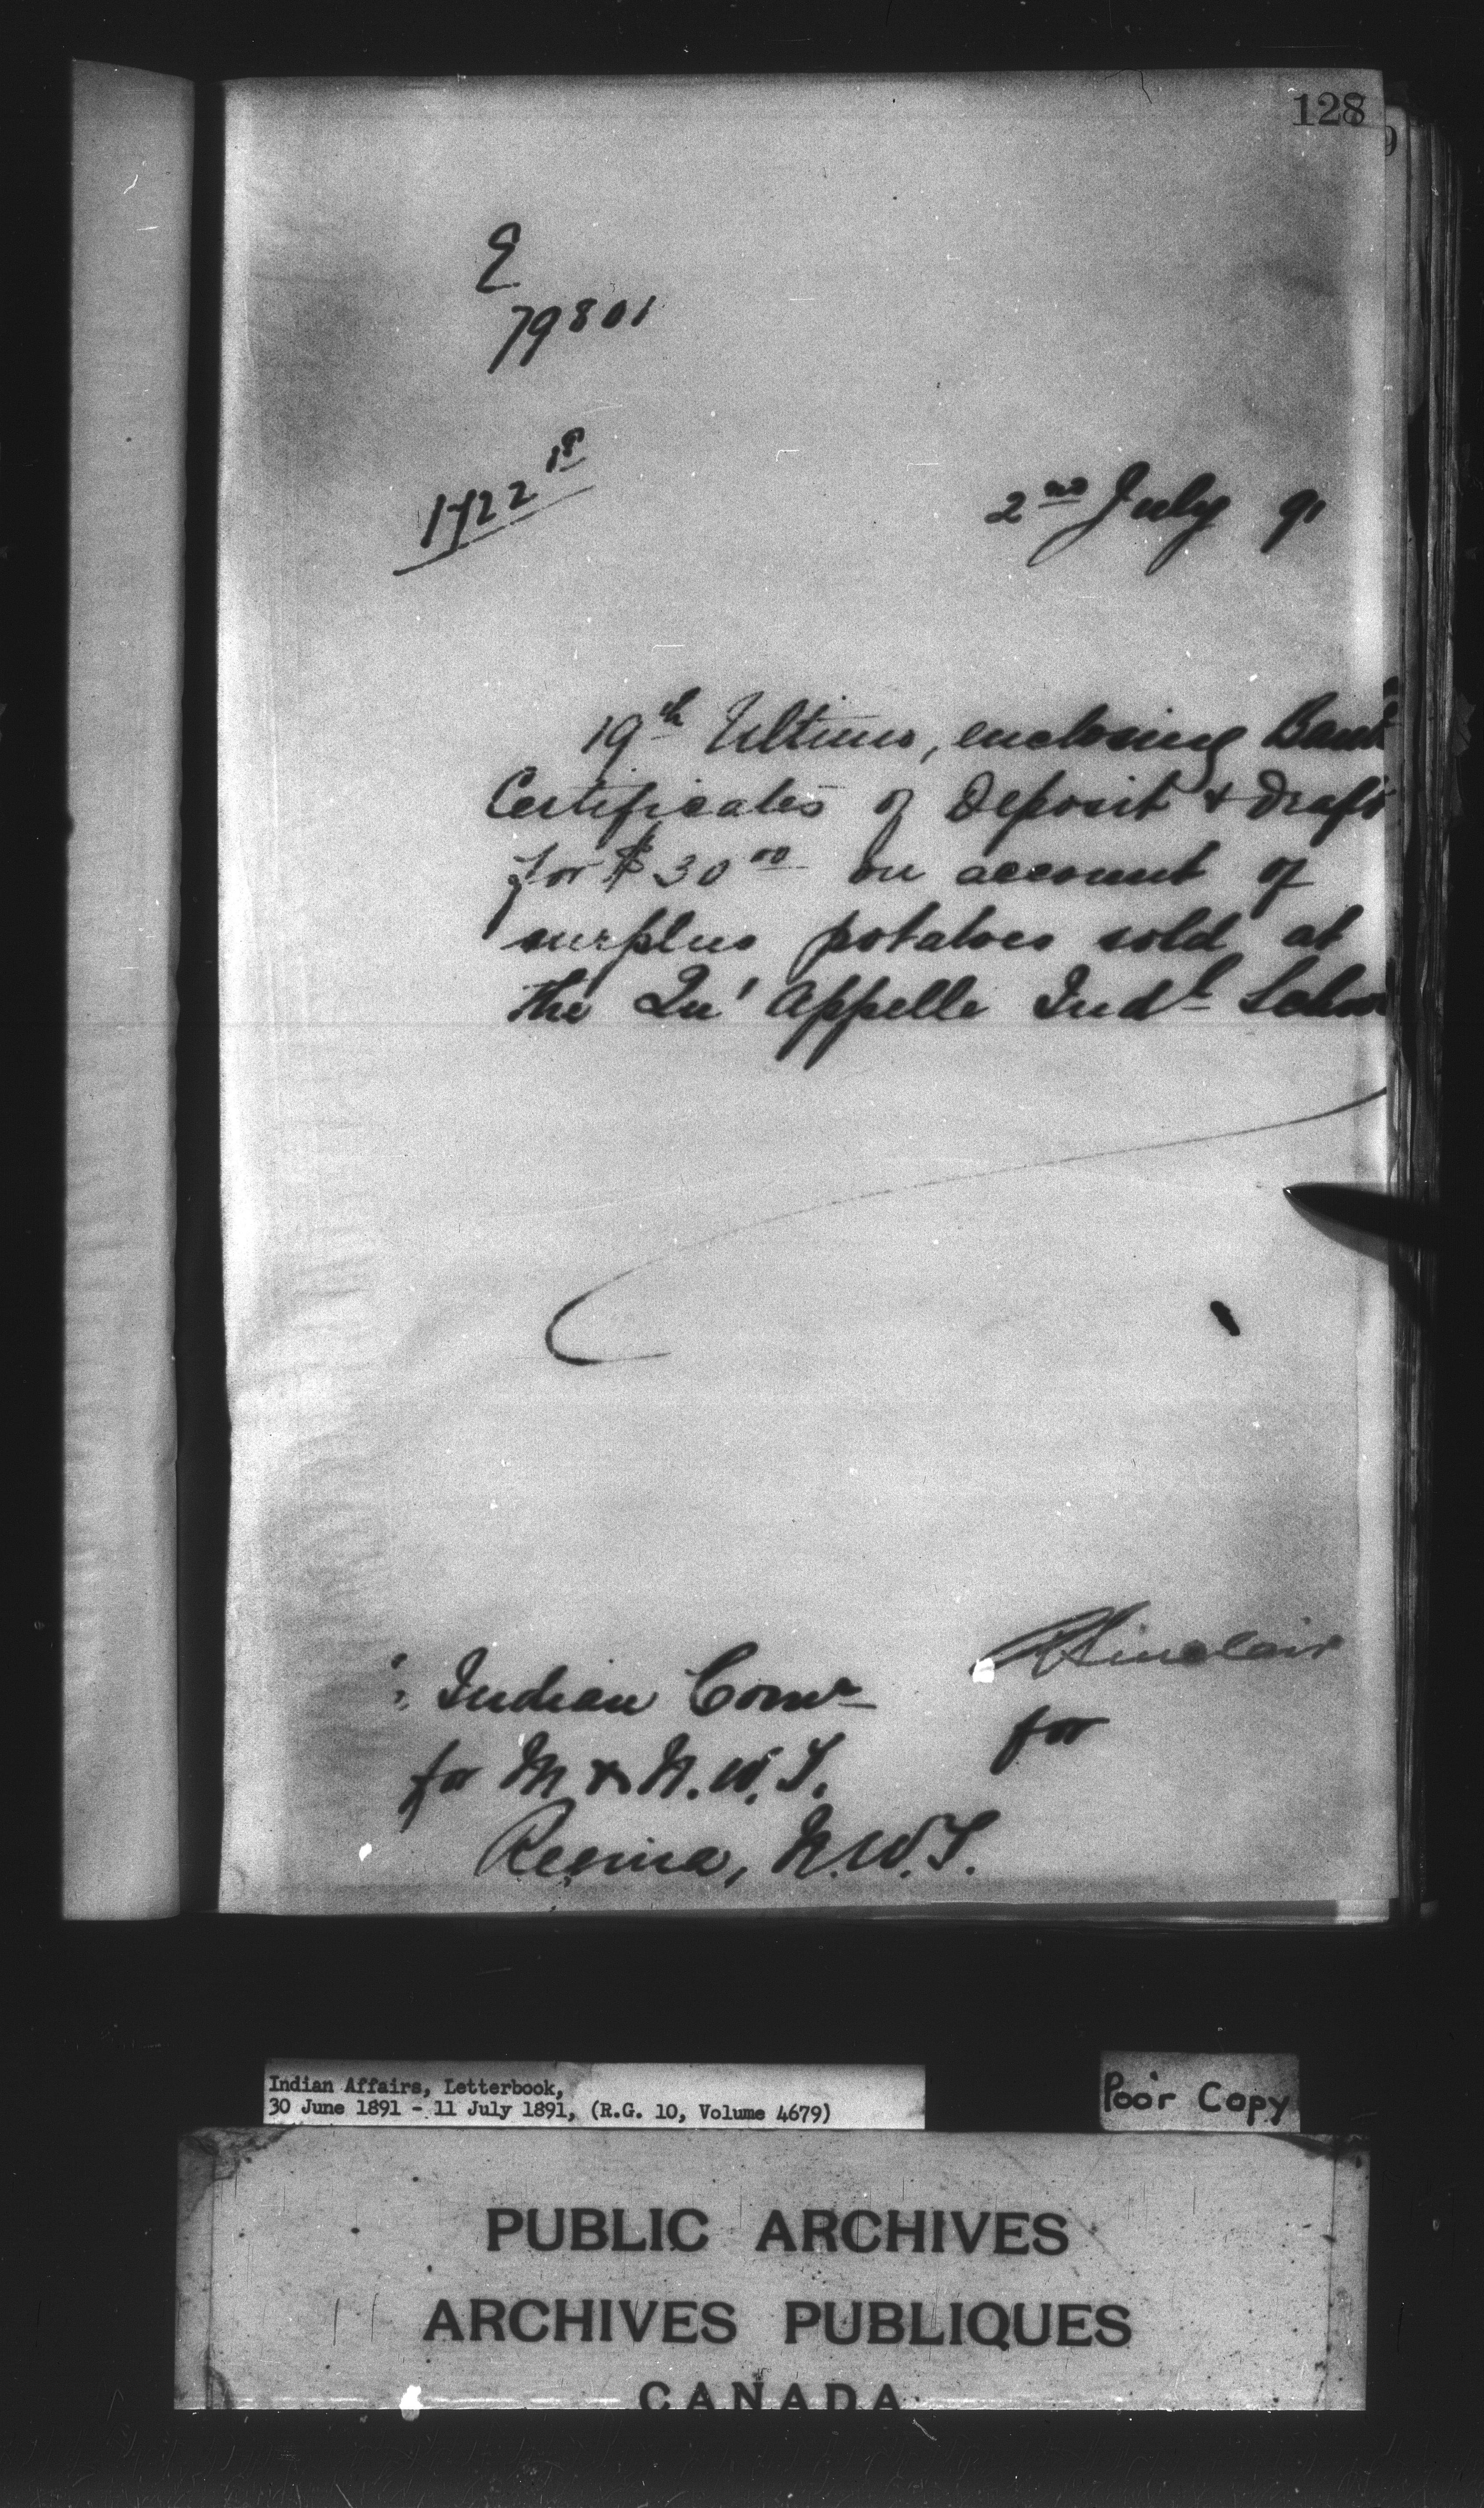 128
E
79801
1722 18
2nd July 91
19th Ultimo, enclosing Bank
Certificates of Deposit & draft
for $30 00 on account of
surplus potatoes sold at
the Qu'Appelle Indl School
Sinclair
Indian Comr
for
for M & N.W.T.
Regina, N.W.T.
Indian Affairs, Letterbook,
30 June 1891 - 11 July 1891, (R.G. 10, Volume 4679)
Poor Copy
PUBLIC ARCHIVES
ARCHIVES PUBLIQUES
CANADA